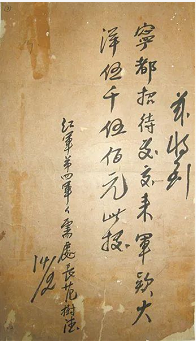 兹收到
寧都招待処交来軍欵大
洋伍千伍佰元此據
红軍第四軍々需處長范樹德
14/2